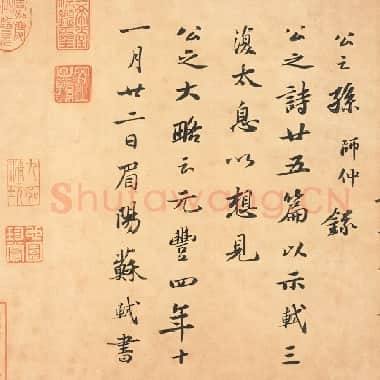 公之孫師仲錄
公之詩廿五篇以示軾三
復太息以想見
公之大略云元豐四年十
一月廿二日眉陽蘇軾書
Shufawang.CN